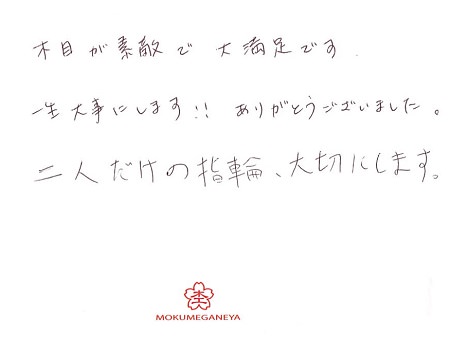 木目が素敵で 大満足です.
一生大事にします!! ありがとうございました。
二人だけの指輪、大切にします。
MOKUMEGANEYA